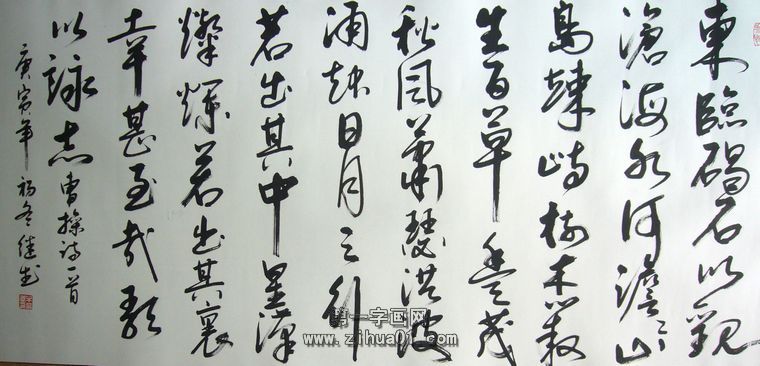 東臨碣石以觀
滄海水何澹澹山
島竦峙樹木叢
生百草豐茂
秋風蕭瑟洪波
涌起日月之行
若出其中星漢
燦爛若出其裏
幸甚至哉歌
以詠志 曹操詩一首
庚寅年 福冬
第一字画网
www.zihua01.com